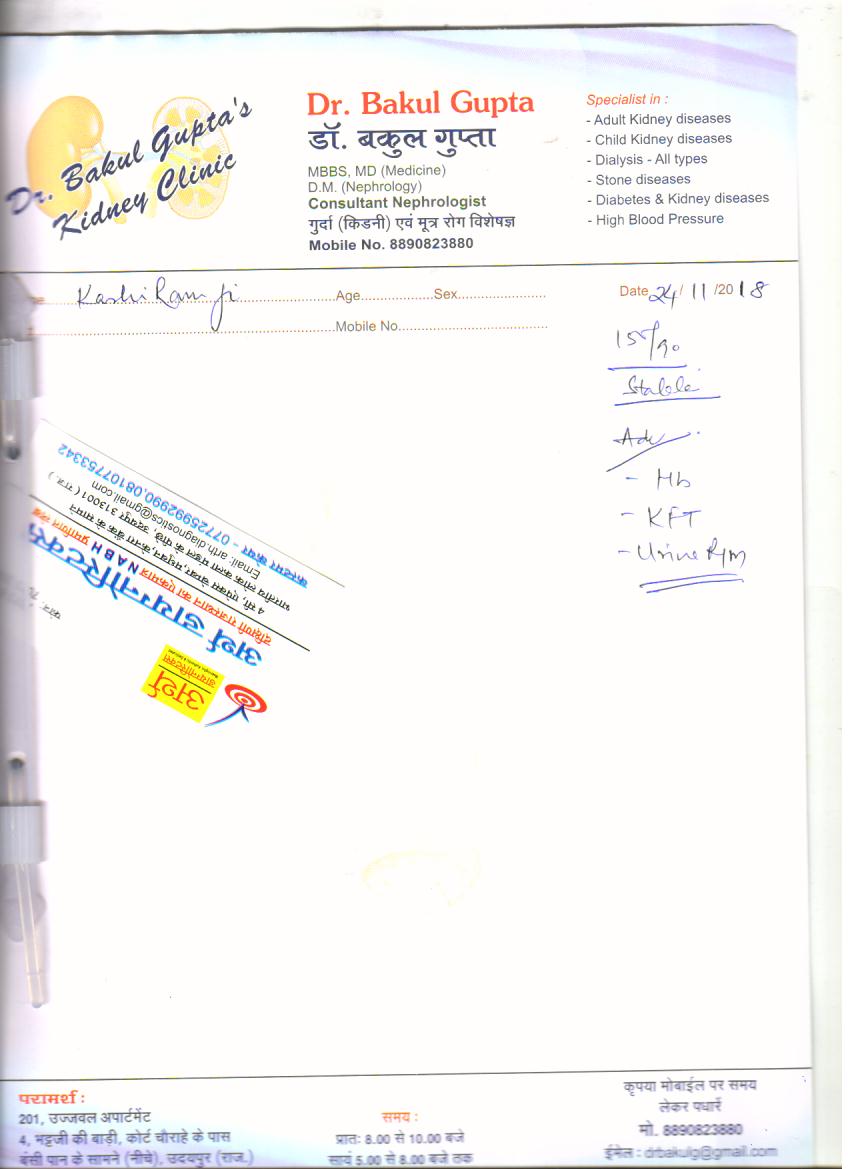 Dr. Bakul Gupta's
Kidney Clinic
Dr. Bakul Gupta
डॉ. बकुल गुप्ता
MBBS, MD (Medicine)
D.M. (Nephrology)
Consultant Nephrologist
गुर्दा (किडनी) एवं मूत्र रोग विशेषज्ञ
Mobile No. 8890823880
Specialist in :
- Adult Kidney diseases
- Child Kidney diseases
- Dialysis - All types
- Stone diseases
- Diabetes & Kidney diseases
- High Blood Pressure
Kashi Ram ji Age Sex Date 24/11/2018
Mobile No.
/90
Stable
Adv
- Hb
- KFT
- Urine R/m
अर्थ
डायग्नोस्टिक्स
अर्थ डायग्नोस्टिक्स
दक्षिणी राजस्थान का एकमात्र NABH प्रमाणित लैब
4 सी, एपेक्स चेम्बर, मधुवन, केनरा बैंक के सामने
भारतीय लोक कला मंडल के पीछे, उदयपुर 313001 (राज.)
Email: arth.diagnostics@gmail.com
कस्टमर केयर - 07725992990,08107753342
परामर्श :
201, उज्जवल अपार्टमेंट
4, भट्टजी की बाड़ी, कोर्ट चौराहे के पास
बंसी पान के सामने (नीचे), उदयपुर (राज.)
समय :
प्रातः 8.00 से 10.00 बजे
सायं 5.00 से 8.00 बजे तक
कृपया मोबाईल पर समय
लेकर पधारें
मो. 8890823880
ईमेल : drbakulg@gmail.com